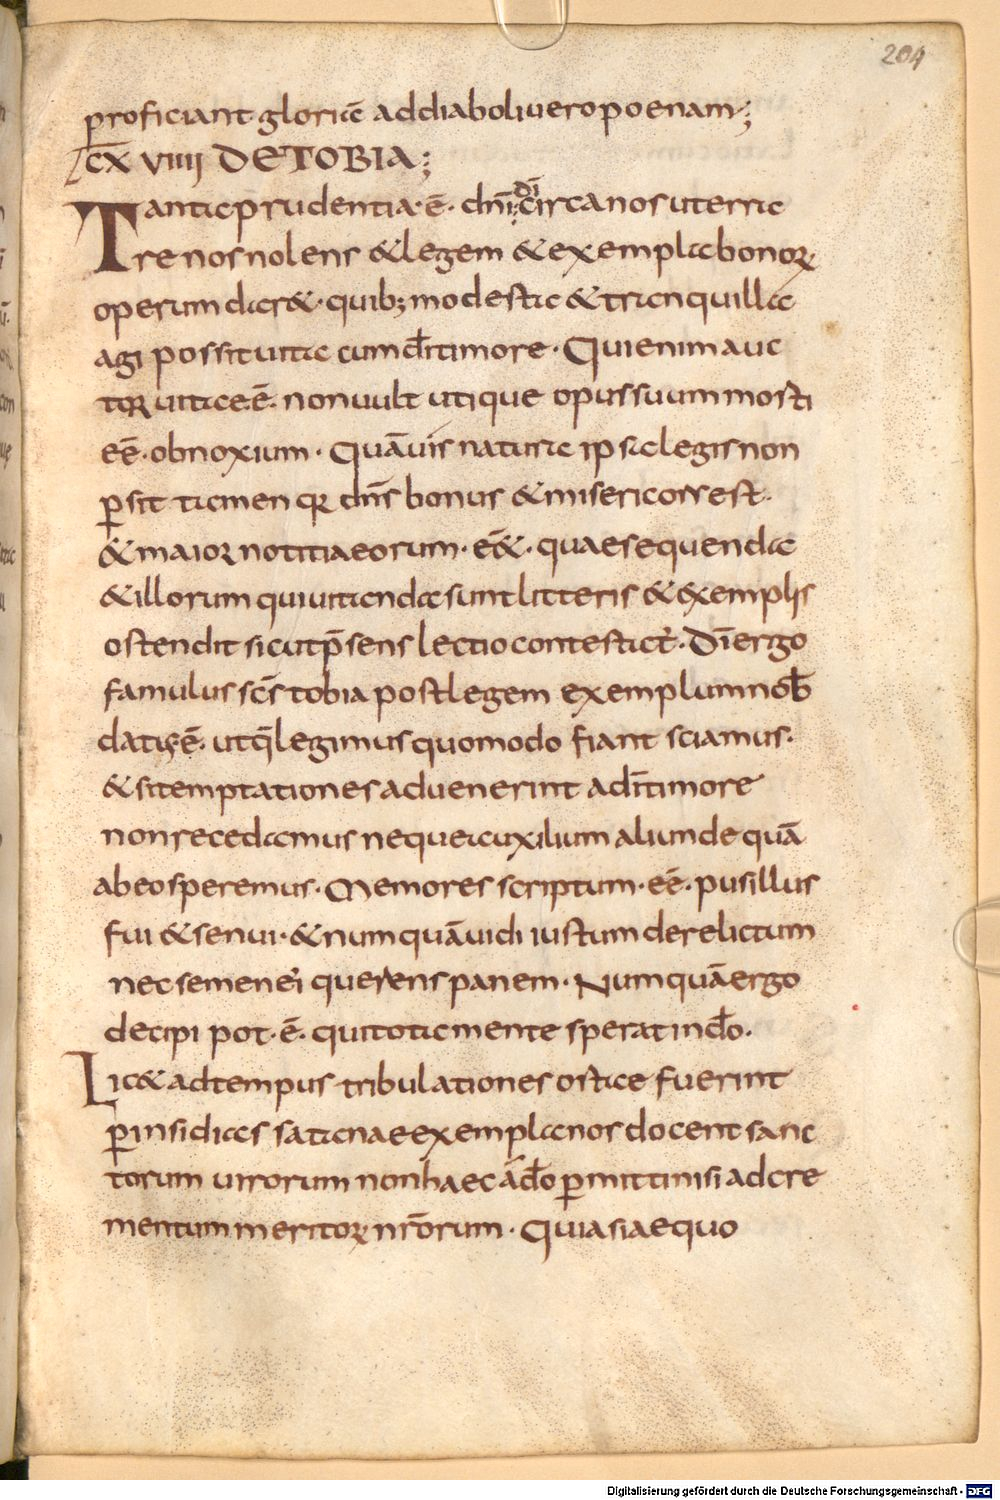 204
proficiant gloriae ad diaboli uero poenam;
CXVIIII DE TOBIA;
Tanta prudentia·ē· dn̄i dī circa nos ut erra
re nos nolens & legem & exempla bonoꝝ
operum dar&· quib; modesta & tranquilla
agi possit uita cum dī timore· Qui enim auc
tor uitae·ē· non uult utique opus suum morti
eē· obnoxium· Quāuis natura ipsa legis non
ꝑsit tamen qr dn̄s bonus & misericors est·
& maior notitia eorum· eē&· quae sequenda
& illorum qui uitanda sunt litteris & exemplis
ostendit sicut p̄sens lectio contestat᷑· Dī ergo
famulus sc̄s tobia post legem exemplum nob̄
datus ē· ut q̄ legimus quomodo fiant sciamus·
& si temptationes aduenerint a dī timore
non recedamus neque auxilium aliunde quā
ab eo speremus· Memores scriptum· eē· pusillus
fui & senui· & num quā uidi iustum derelictum
nec semen ei querens panem· Numquā ergo
decipi pot·ē· qui tota mente sperat in dō·
Lic& ad tempus tribulationes ortae fuerint
ꝑ insidias satanae exempla nos docent sanc
torum uirorum non haec a dō ꝑmitti nisi ad cre
mentum meritoꝝ nr̄orum· Quia si aequo
Digitalisierung gefördert durch die Deutsche Forschungsgemeinschaft - DFG